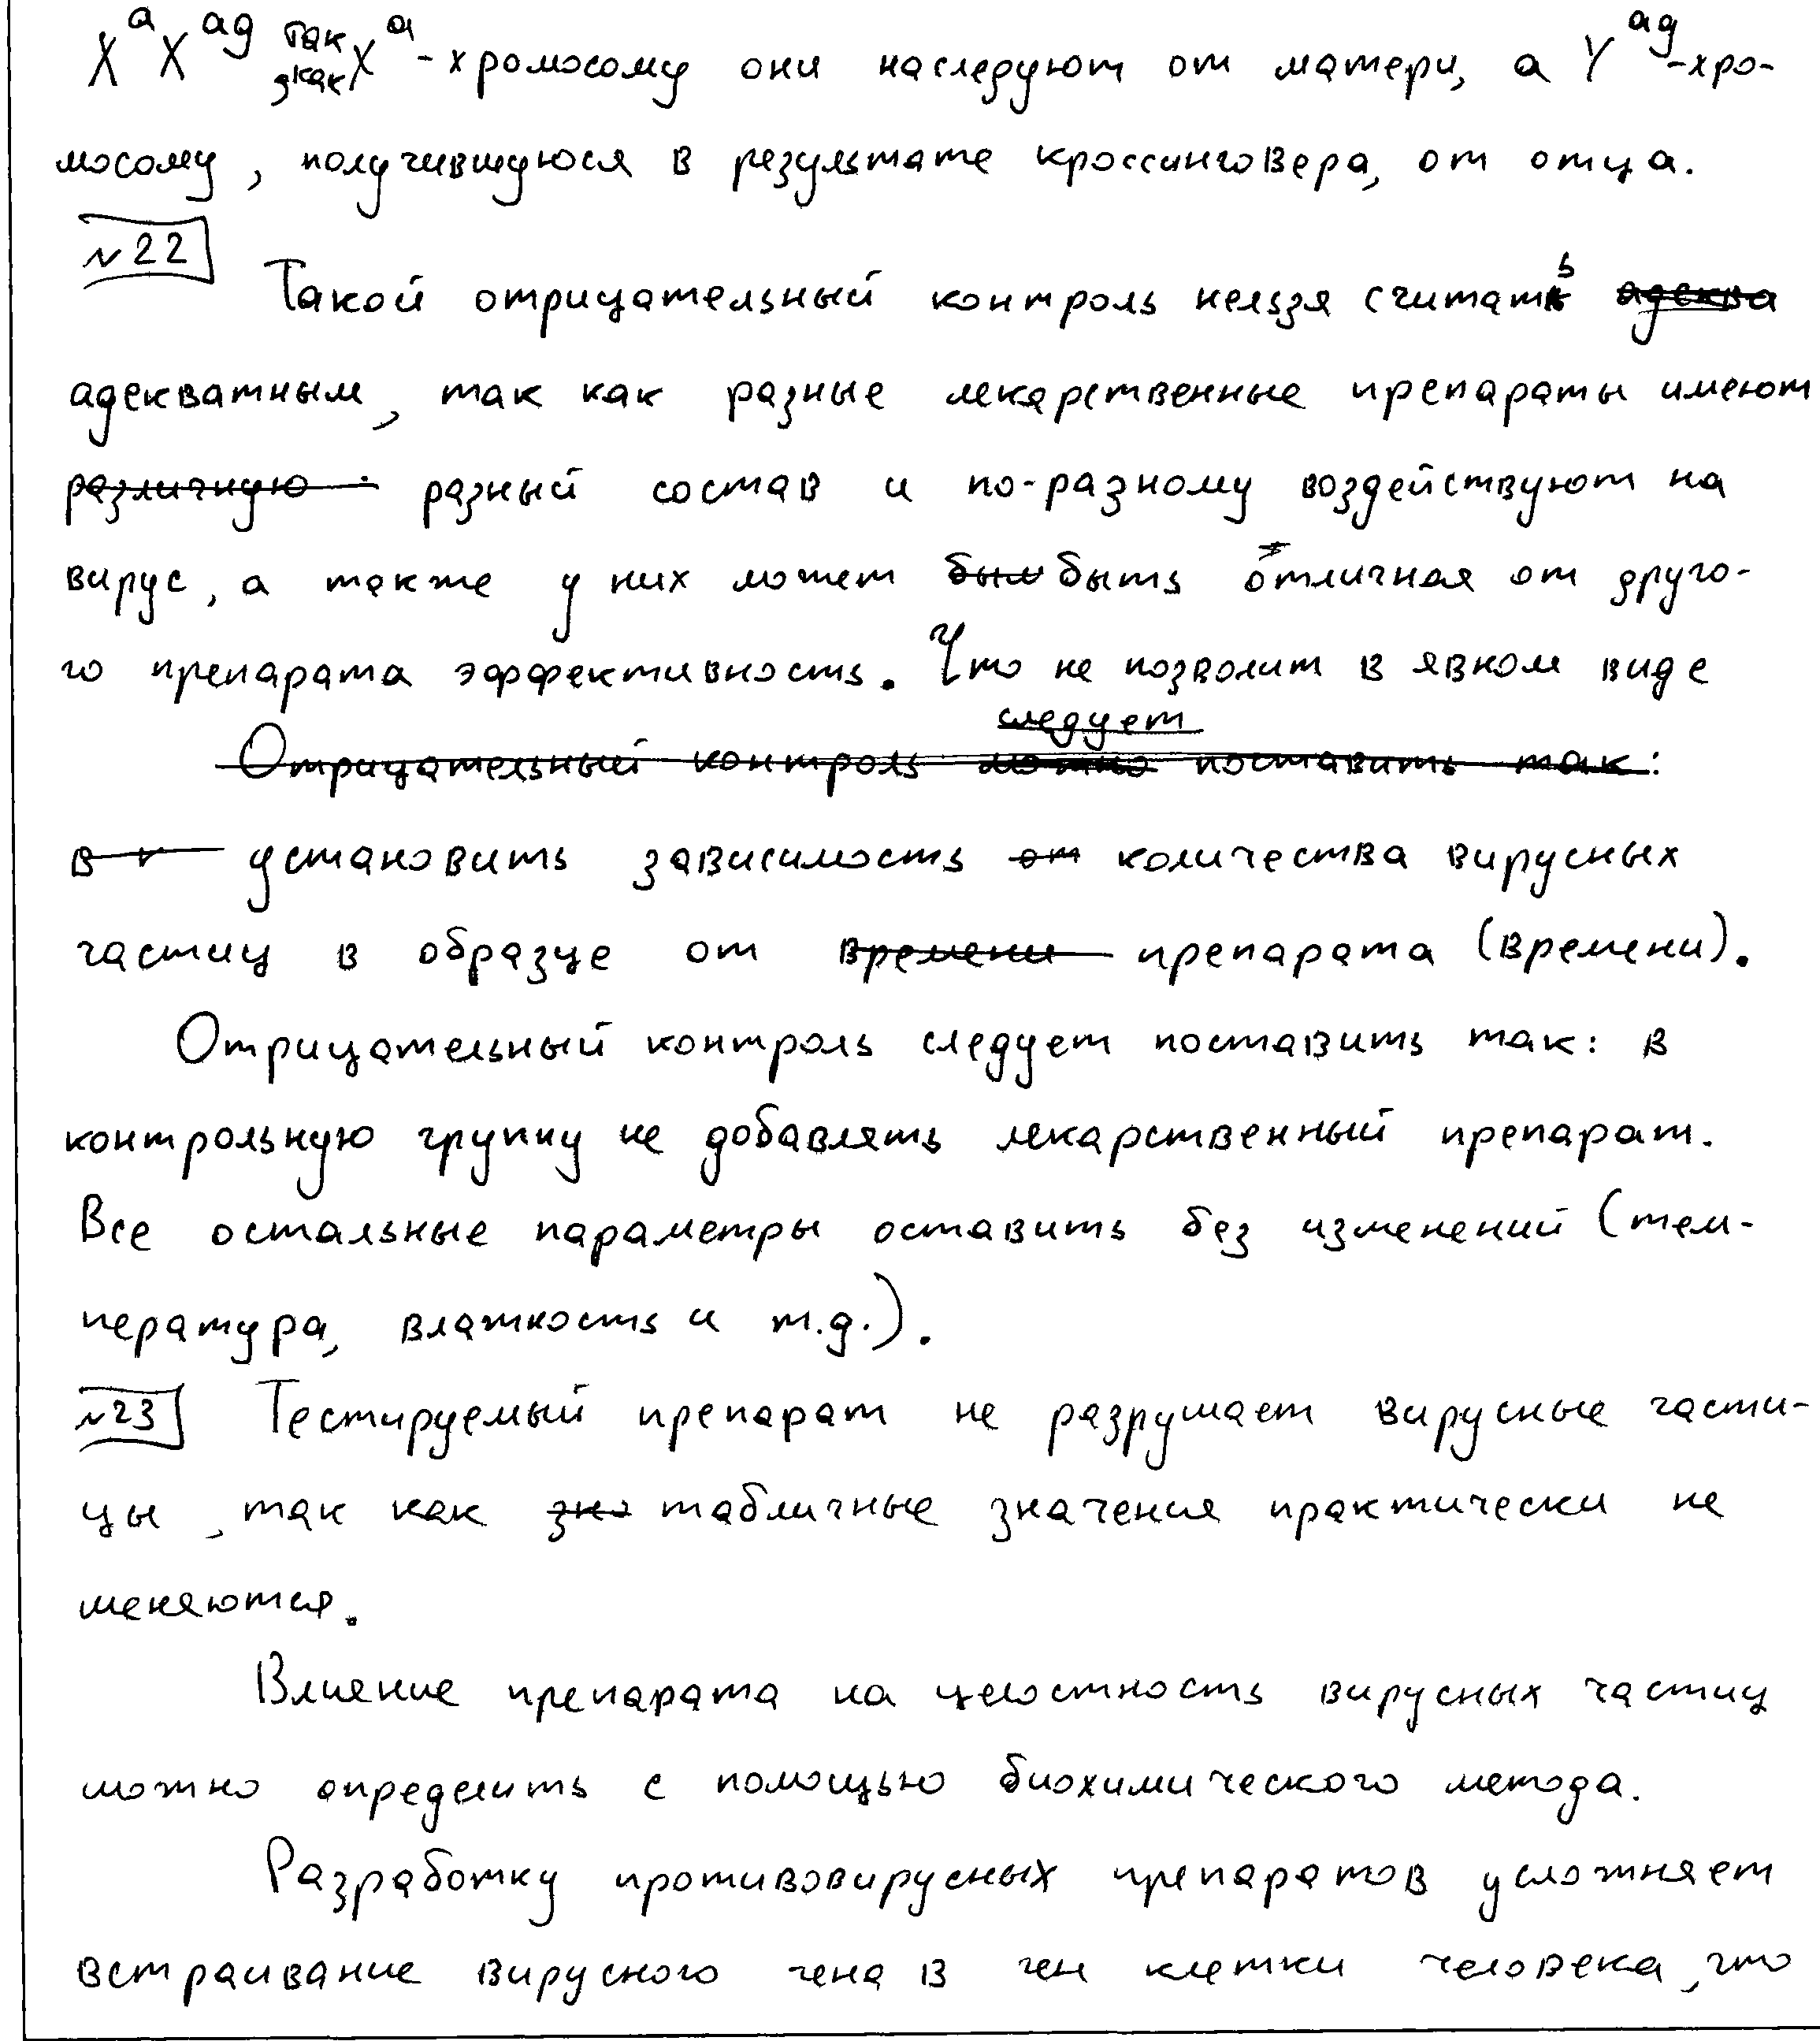 XᵃXᵃᵈ так как Xᵃ-хромосому они наследуют от матери, а Yᵃᵈ-хро-
мосому, получившуюся в результате кроссинговера, от отца.
№22
Такой отрицательный контроль нельзя считать адеква
адекватным, так как разные лекарственные препараты имеют
различную разный состав и по-разному воздействуют на
вирус, а также у них может был быть отличная от друго-
го препарата эффективность. Что не позволит в явном виде
следует
Отрицательный контроль можно поставить так:
в к установить зависимость от количества вирусных
частиц в образце от времени препарата (времени).
Отрицательный контроль следует поставить так: в
контрольную группу не добавлять лекарственный препарат.
Все остальные параметры оставить без изменений (тем-
пература, влажность и т.д.).
№23 Тестируемый препарат не разрушает вирусные части-
цы, так как зна табличные значения практически не
меняются.
Влияние препарата на целостность вирусных частиц
можно определить с помощью биохимического метода.
Разработку противовирусных препаратов усложняет
встраивание вирусного гена в ген клетки человека, что